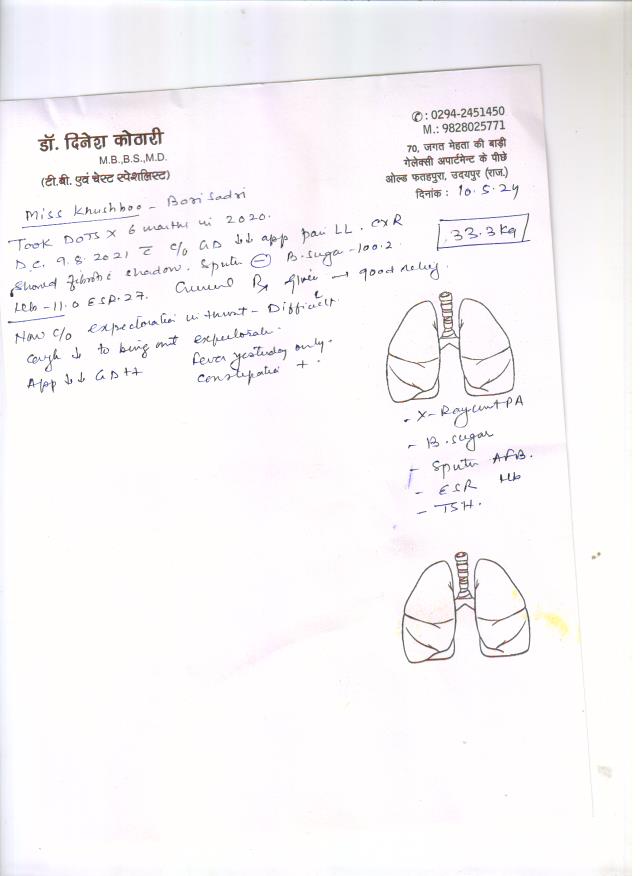 डॉ. दिनेश कोठारी
M.B.,B.S.,M.D.
(टी.बी. एवं चेस्ट स्पेशलिस्ट)
✆: 0294-2451450
M.: 9828025771
70, जगत मेहता की बाड़ी
गेलेक्सी अपार्टमेन्ट के पीछे
ओल्ड फतहपुरा, उदयपुर (राज.)
दिनांक : 10.5.24
Miss Khushboo - Bori Sadri
33.3 kg
Took DOTS x 6 months in 2020.
D.C. 9.8.2021 c̄ c/o GD ↓↓ app pain LL. CXR
Showed fibrotic shadow. Sputum ⊖ B. Sugar - 100.2
Hb - 11.0 ESR. 27. given → good relief
Now c/o expectoration in throat - Difficult
cough ↓ to bring out
App ↓↓ GD ++ fever yesterday only.
Constipation +
- X-Ray PA
- B. sugar
- Sputum AFB.
- ESR Hb
- TSH.